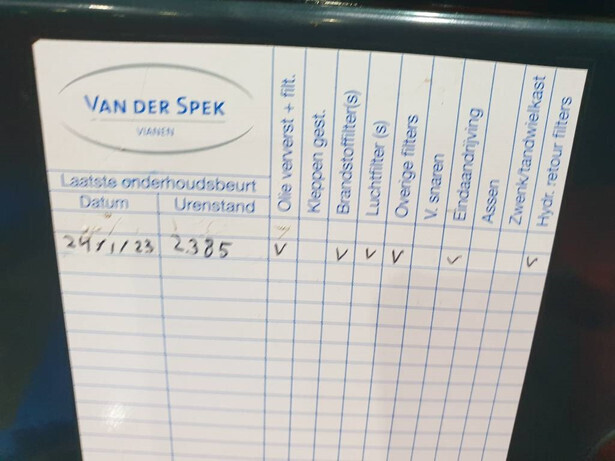 VAN DER SPEK
VIANEN
Laatste onderhoudsbeurt
Datum Urenstand
Olie ververst + filt.
Kleppen gest.
Brandstoffilter(s)
Luchtfilter (s)
Overige filters
V. snaren
Eindaandrijving
Assen
Zwenk/tandwielkast
Hydr. retour filters
24/1/23 2385 v v v v v v